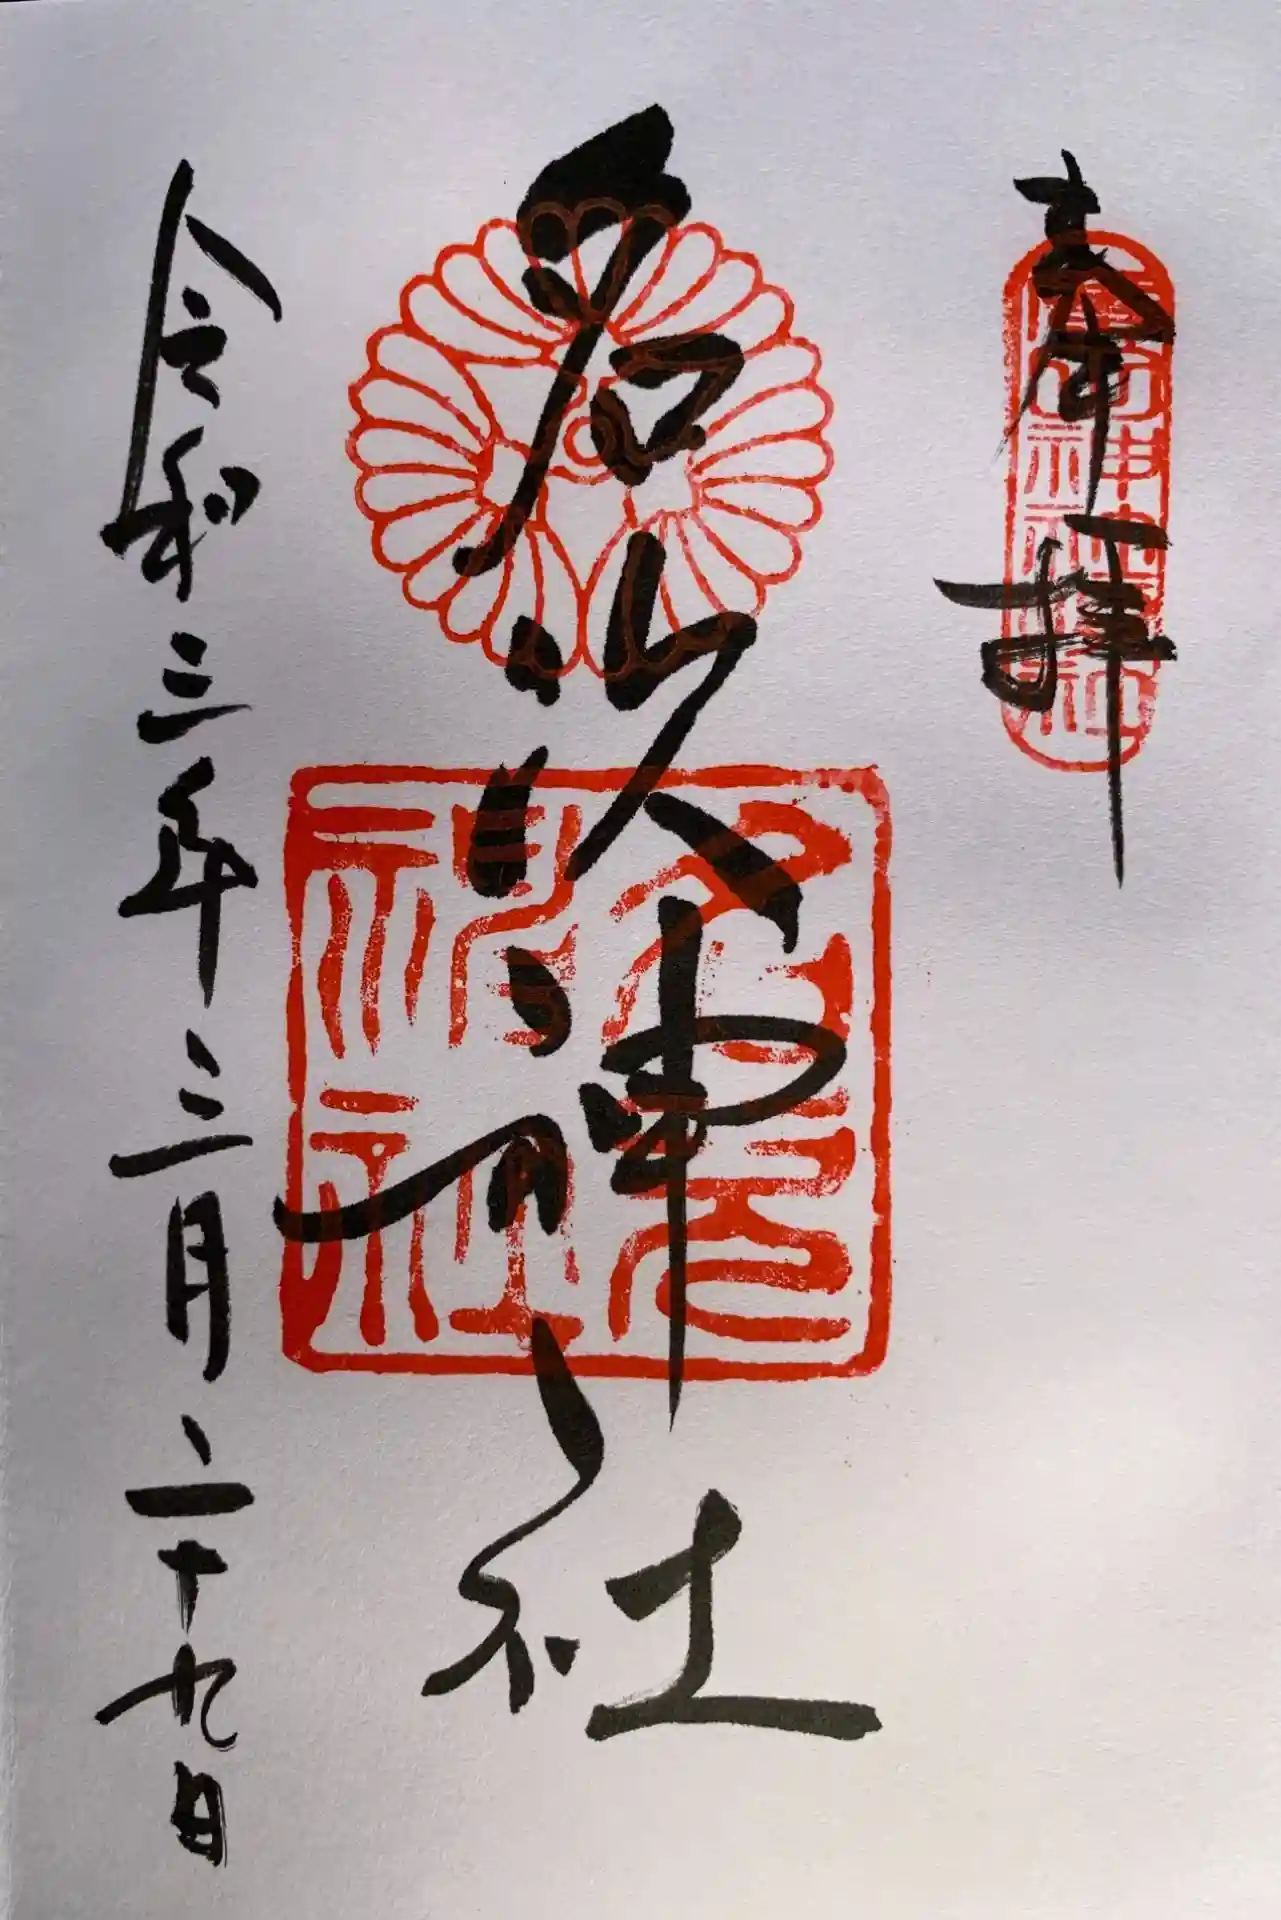 奉拝
名次神社
令和三年三月二十九日
名次神社